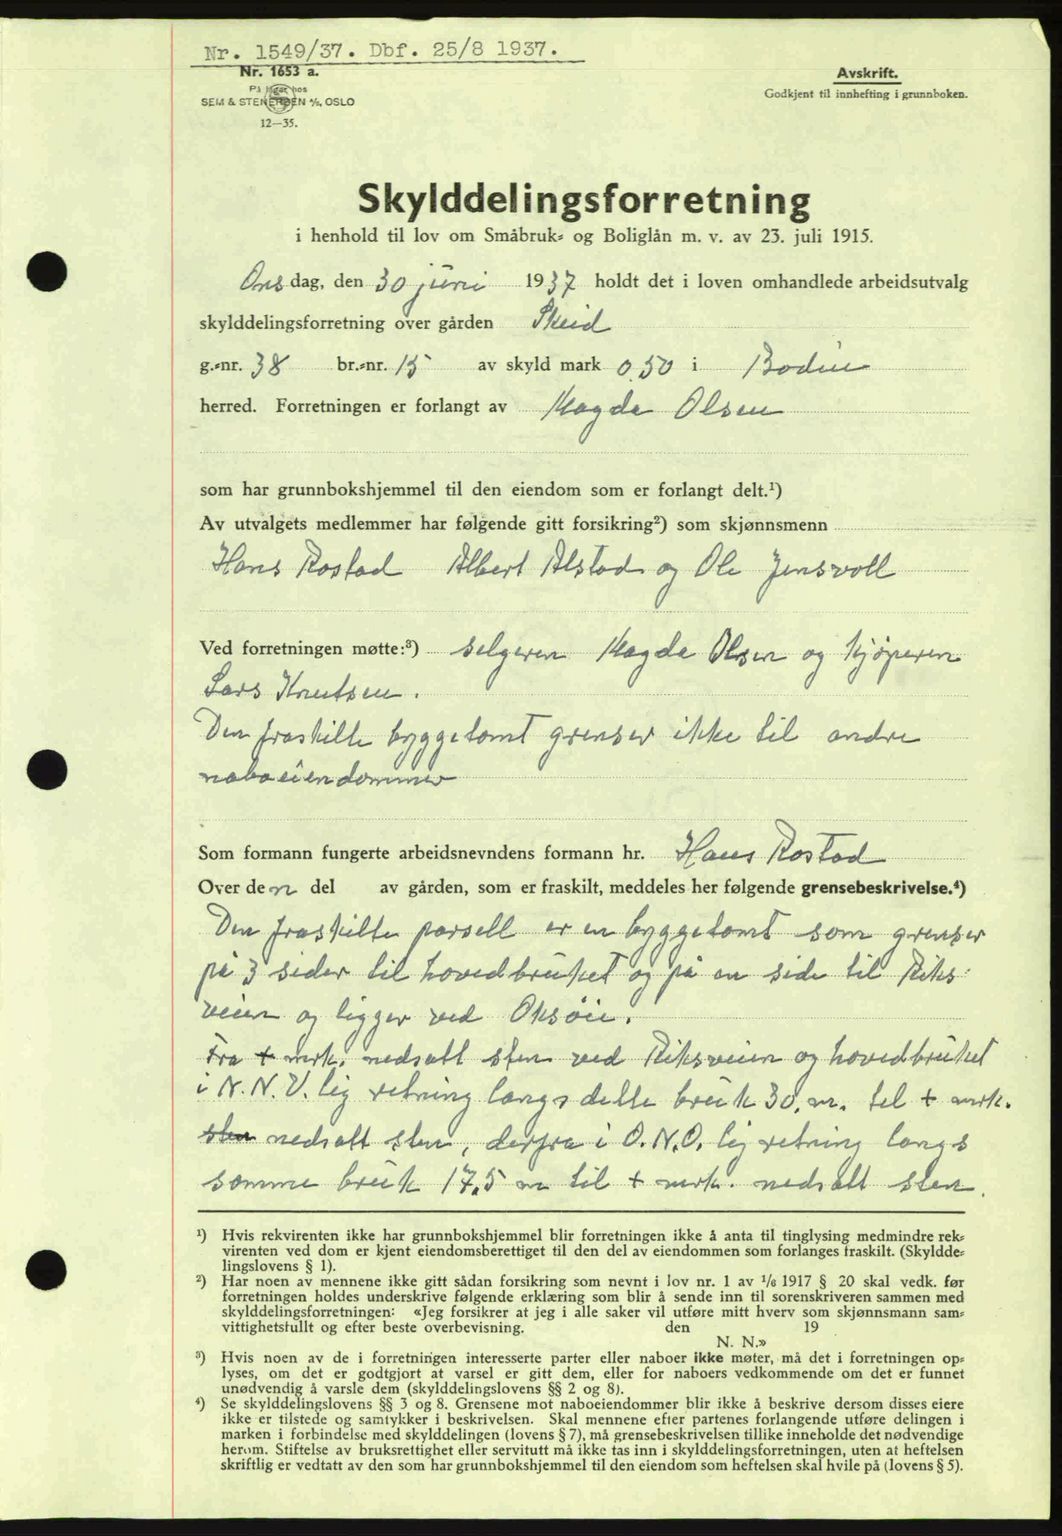 Nr. 1549/37. Dbf. 25/8 1937.
Nr. 1653 a.
På lager hos
SEM & STENERSEN A/S, OSLO
12—35.
Avskrift.
Godkjent til innhefting i grunnboken.
Skylddelingsforretning
i henhold til lov om Småbruk- og Boliglån m. v. av 23. juli 1915.
Onsdag, den 30 juni 1937 holdt det i loven omhandlede arbeidsutvalg
skylddelingsforretning over gården Skeid
g.-nr. 38 br.-nr. 15 av skyld mark 0.50 i Bodin
herred. Forretningen er forlangt av Magda Olsen
som har grunnbokshjemmel til den eiendom som er forlangt delt.¹)
Av utvalgets medlemmer har følgende gitt forsikring²) som skjønnsmenn
Hans Rostad Albert Alstad og Ole Jensvoll
Ved forretningen møtte:³) selgeren Magda Olsen og kjøperen
Lars Knutsen.
Den fraskilte byggetomt grenser ikke til andre
naboeiendommer
Som formann fungerte arbeidsnevndens formann hr. Hans Rostad
Over den del av gården, som er fraskilt, meddeles her følgende grensebeskrivelse.⁴)
Den fraskilte parsell er en byggetomt som grenser
på 3 sider til hovedbruket og på en side til Riks-
veien og ligger ved Oksøie.
Fra + merk. nedsatt sten ved Riksveien og hovedbruket
i N. N. V. lig retning langs dette bruk 30. m. til + merk.
sten nedsatt sten, derfra i O. N. O. lig retning langs
samme bruk 17.5 m til + merk. nedsatt sten.
¹) Hvis rekvirenten ikke har grunnbokshjemmel blir forretningen ikke å anta til tinglysing medmindre rek-
virenten ved dom er kjent eiendomsberettiget til den del av eiendommen som forlanges fraskilt. (Skyldde-
lingslovens § 1).
²) Har noen av mennene ikke gitt sådan forsikring som nevnt i lov nr. 1 av 1/6 1917 § 20 skal vedk. før
forretningen holdes underskrive følgende erklæring som blir å sende inn til sorenskriveren sammen med
skylddelingsforretningen: «Jeg forsikrer at jeg i alle saker vil utføre mitt hverv som skjønnsmann sam-
vittighetsfullt og efter beste overbevisning. den 19
N. N.»
³) Hvis noen av de i forretningen interesserte parter eller naboer ikke møter, må det i forretningen op-
lyses, om det er godtgjort at varsel er gitt dem, eller for naboers vedkommende om det er funnet
unødvendig å varsle dem (skylddelingslovens §§ 2 og 8).
⁴) Se skylddelingslovens §§ 3 og 8. Grensene mot naboeiendommer blir ikke å beskrive dersom disses eiere
ikke er tilstede og samtykker i beskrivelsen. Skal mennene efter partenes forlangende utføre delingen i
marken i forbindelse med skylddelingen (lovens § 7), må grensebeskrivelsen tillike inneholde det nødvendige
herom. Stiftelse av bruksrettighet eller servitutt må ikke tas inn i skylddelingsforretningen, uten at heftelsen
skriftlig er vedtatt av den som har grunnbokshjemmel til den eiendom som heftelsen skal hvile på (lovens § 5).